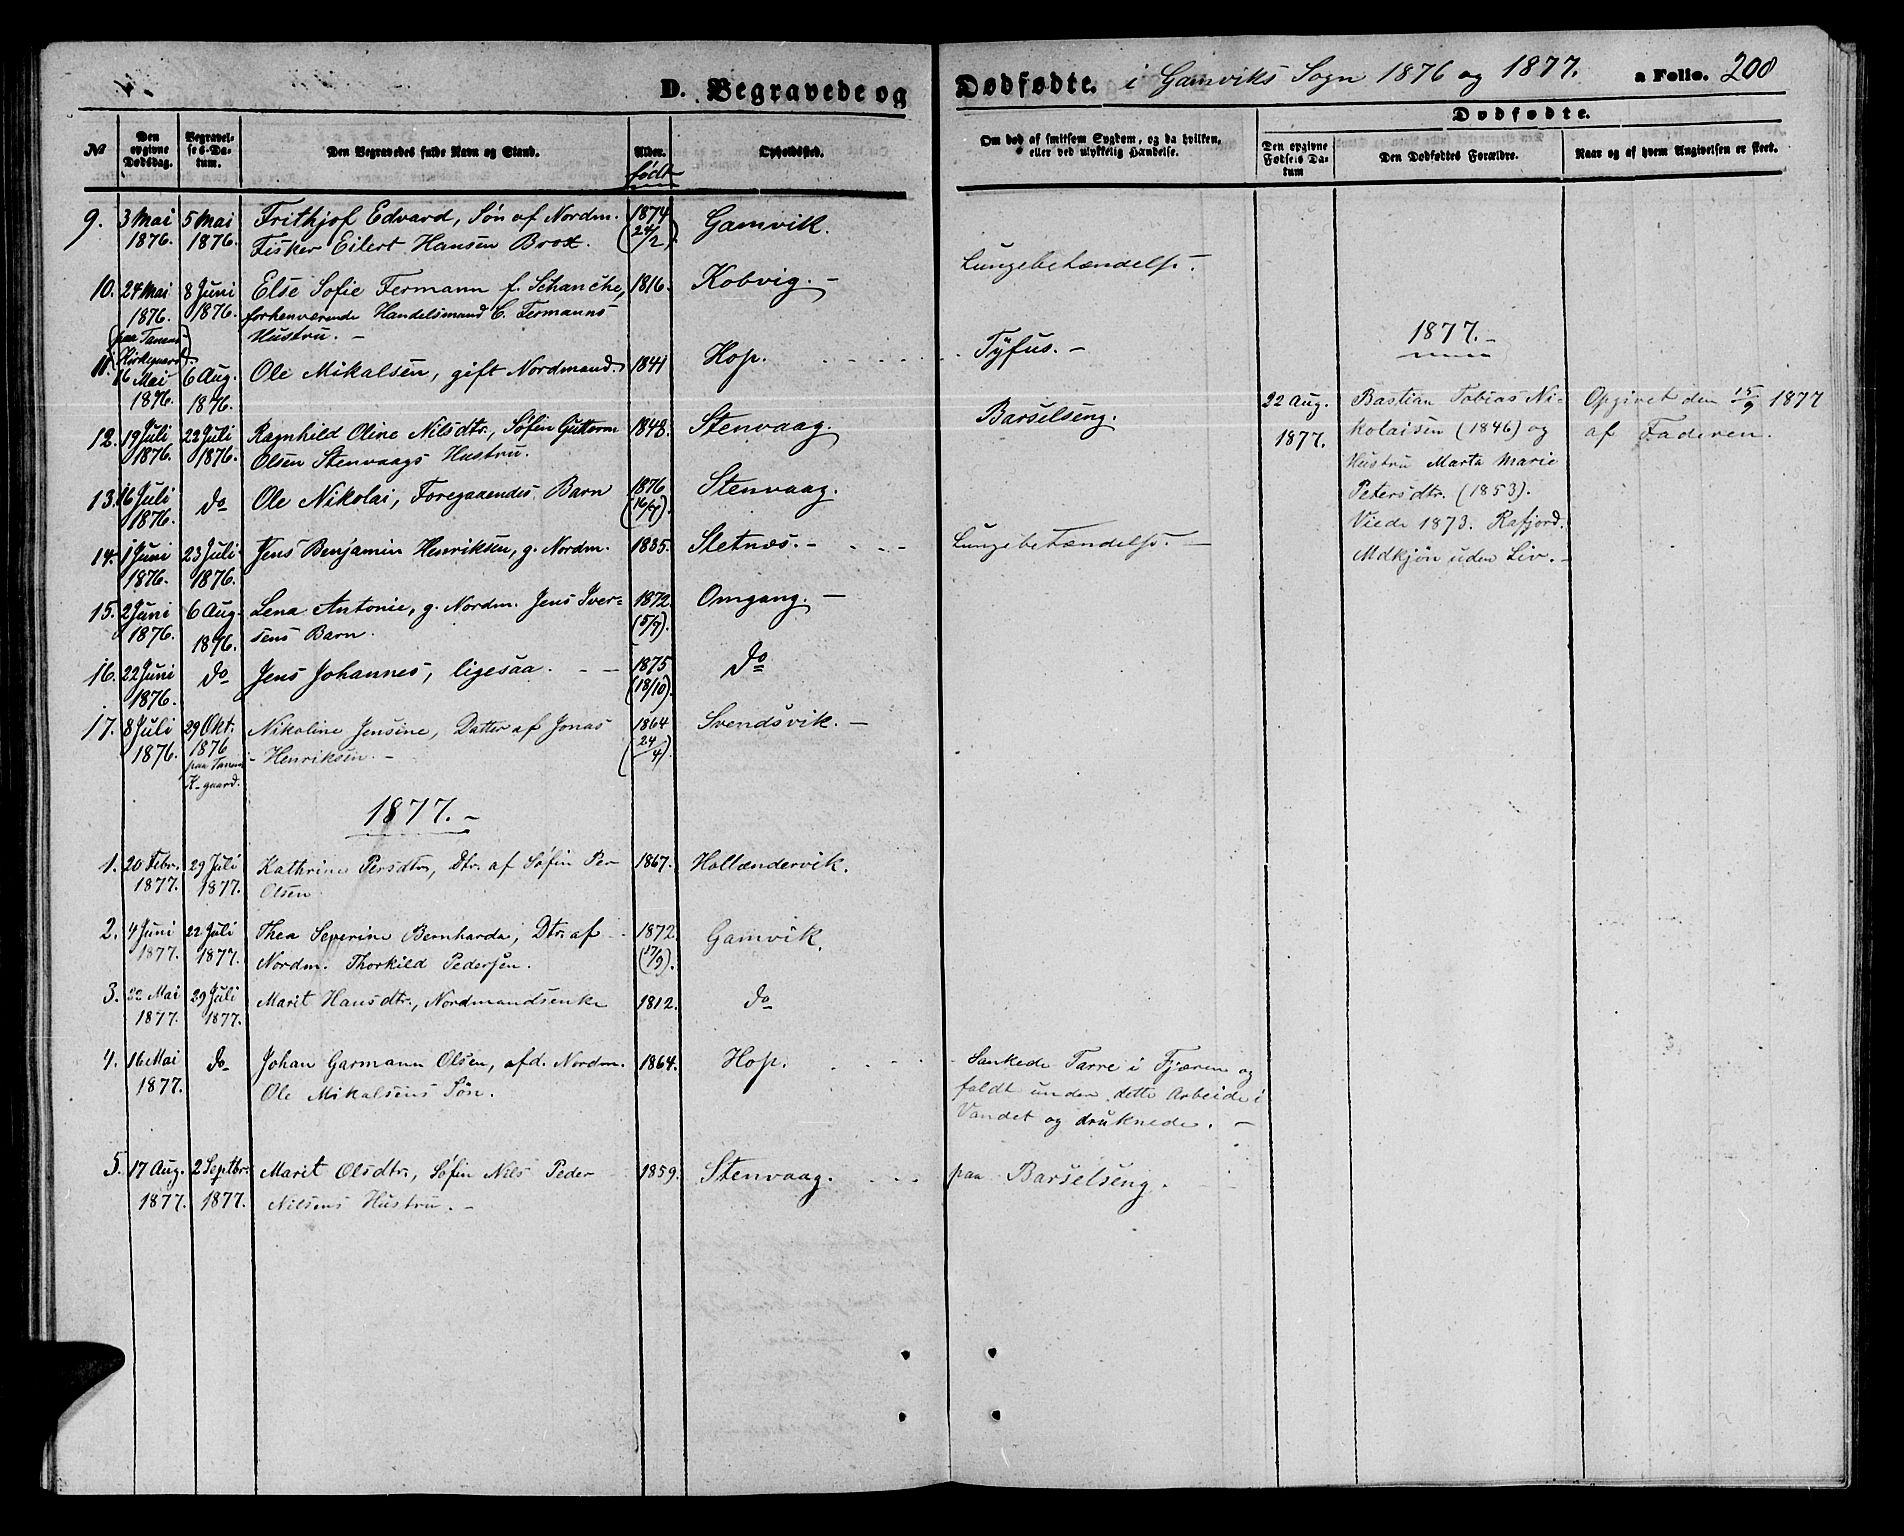 D. Begravede og Dødfødte. i Gamviks Sogn 1876 og 1877. a Folio. 208
Dødfødte.
No
Den opgivne Dødsdag.
Begravelses-Datum.
Den Begravedes fulde Navn og Stand.
Alder.
født
Opholdssted.
Om død af smitsom Sygdom, og da hvilken, eller ved ulykkelig Hændelse.
Den opgivne Fødsels Datum
Den Dødfødtes Forældre.
Naar og af hvem Angivelsen er skeet.
9. 3 Mai 5 Mai Frithjof Edvard, Søn af Nordm. 1874 Gamvik.
1876. 1876. Fisker Eilert Hansen Brox. (24/2).
10. 24 Mai 8 Juni Else Sofie Fermann f. Schanche, 1816. Kobvig. – Lungebetændelse.
1876. 1876. forhenværende Handelsmand C. Fermanns
(paa Tanens Kirkegaard). Hustru. –
11. 16 Mai 6 Aug. Ole Mikalsen, gift Nordmand. 1841 Hop. Tyfus. –
1876. 1876.
12. 19 Juli 22 Juli Ragnhild Oline Nilsdtr., Søfin Guttorm 1848. Stenvaag. Barselseng.
1876. 1876. Olsen Stenvaags Hustru.
13. 16 Juli do Ole Nikolai, Foregaaendes Barn 1876 Stenvaag.
1876. (16/7).
14. 1 Juni 23 Juli Jens Benjamin Henriksen, g. Nordm. 1835. Sletnæs. – Lungebetændelse. –
1876. 1876.
15. 2 Juni 6 Aug. Lena Antonie, g. Nordm. Jens Iver- 1872. Omgang. –
1876. 1876. sens Barn. (5/7).
16. 22 Juni do Jens Johannes, ligesaa. – – 1875 do
1876. (18/10).
17. 8 Juli 29 Okt. Nikoline Jensine, Datter af Jonas 1864 Svendsvik. –
1876. 1876 Henriksen. – (24/4)
paa Tanens
K-gaard.
1877. –
1. 20 Febr. 29 Juli Kathrine Persdtr, Dtr. af Søfin Per 1867. Hollændervik.
1877. 1877. Olsen
2. 4 Juni 22 Juli Thea Severine Bernharda, Dtr. af 1872. Gamvik.
1877. 1877. Nordm. Thorkild Pedersen. (17/9).
3. 22 Mai 29 Juli Marit Hansdtr., Nordmandsenke 1812. do
1877. 1877.
4. 16 Mai do Johan Garmann Olsen, afd. Nordm. 1864. Hop. Sankede Tarre i Fjæren og
1877. Ole Mikalsens Søn. faldt under dette Arbeide i
Vandet og druknede. –
5. 17 Aug. 2 Septbr. Marit Olsdtr., Søfin Nils Peder 1859. Stenvaag. paa Barselseng.
1877. 1877. Nilsens Hustru. –
1877. –
22 Aug. Bastian Tobias Ni- Opgivet den 15/9 1877
1877. kolaisen (1846) og af Faderen.
Hustru Marta Marie
Petersdtr. (1853).
Viede 1873. Rafjord.
Mdkjøn uden Liv. –